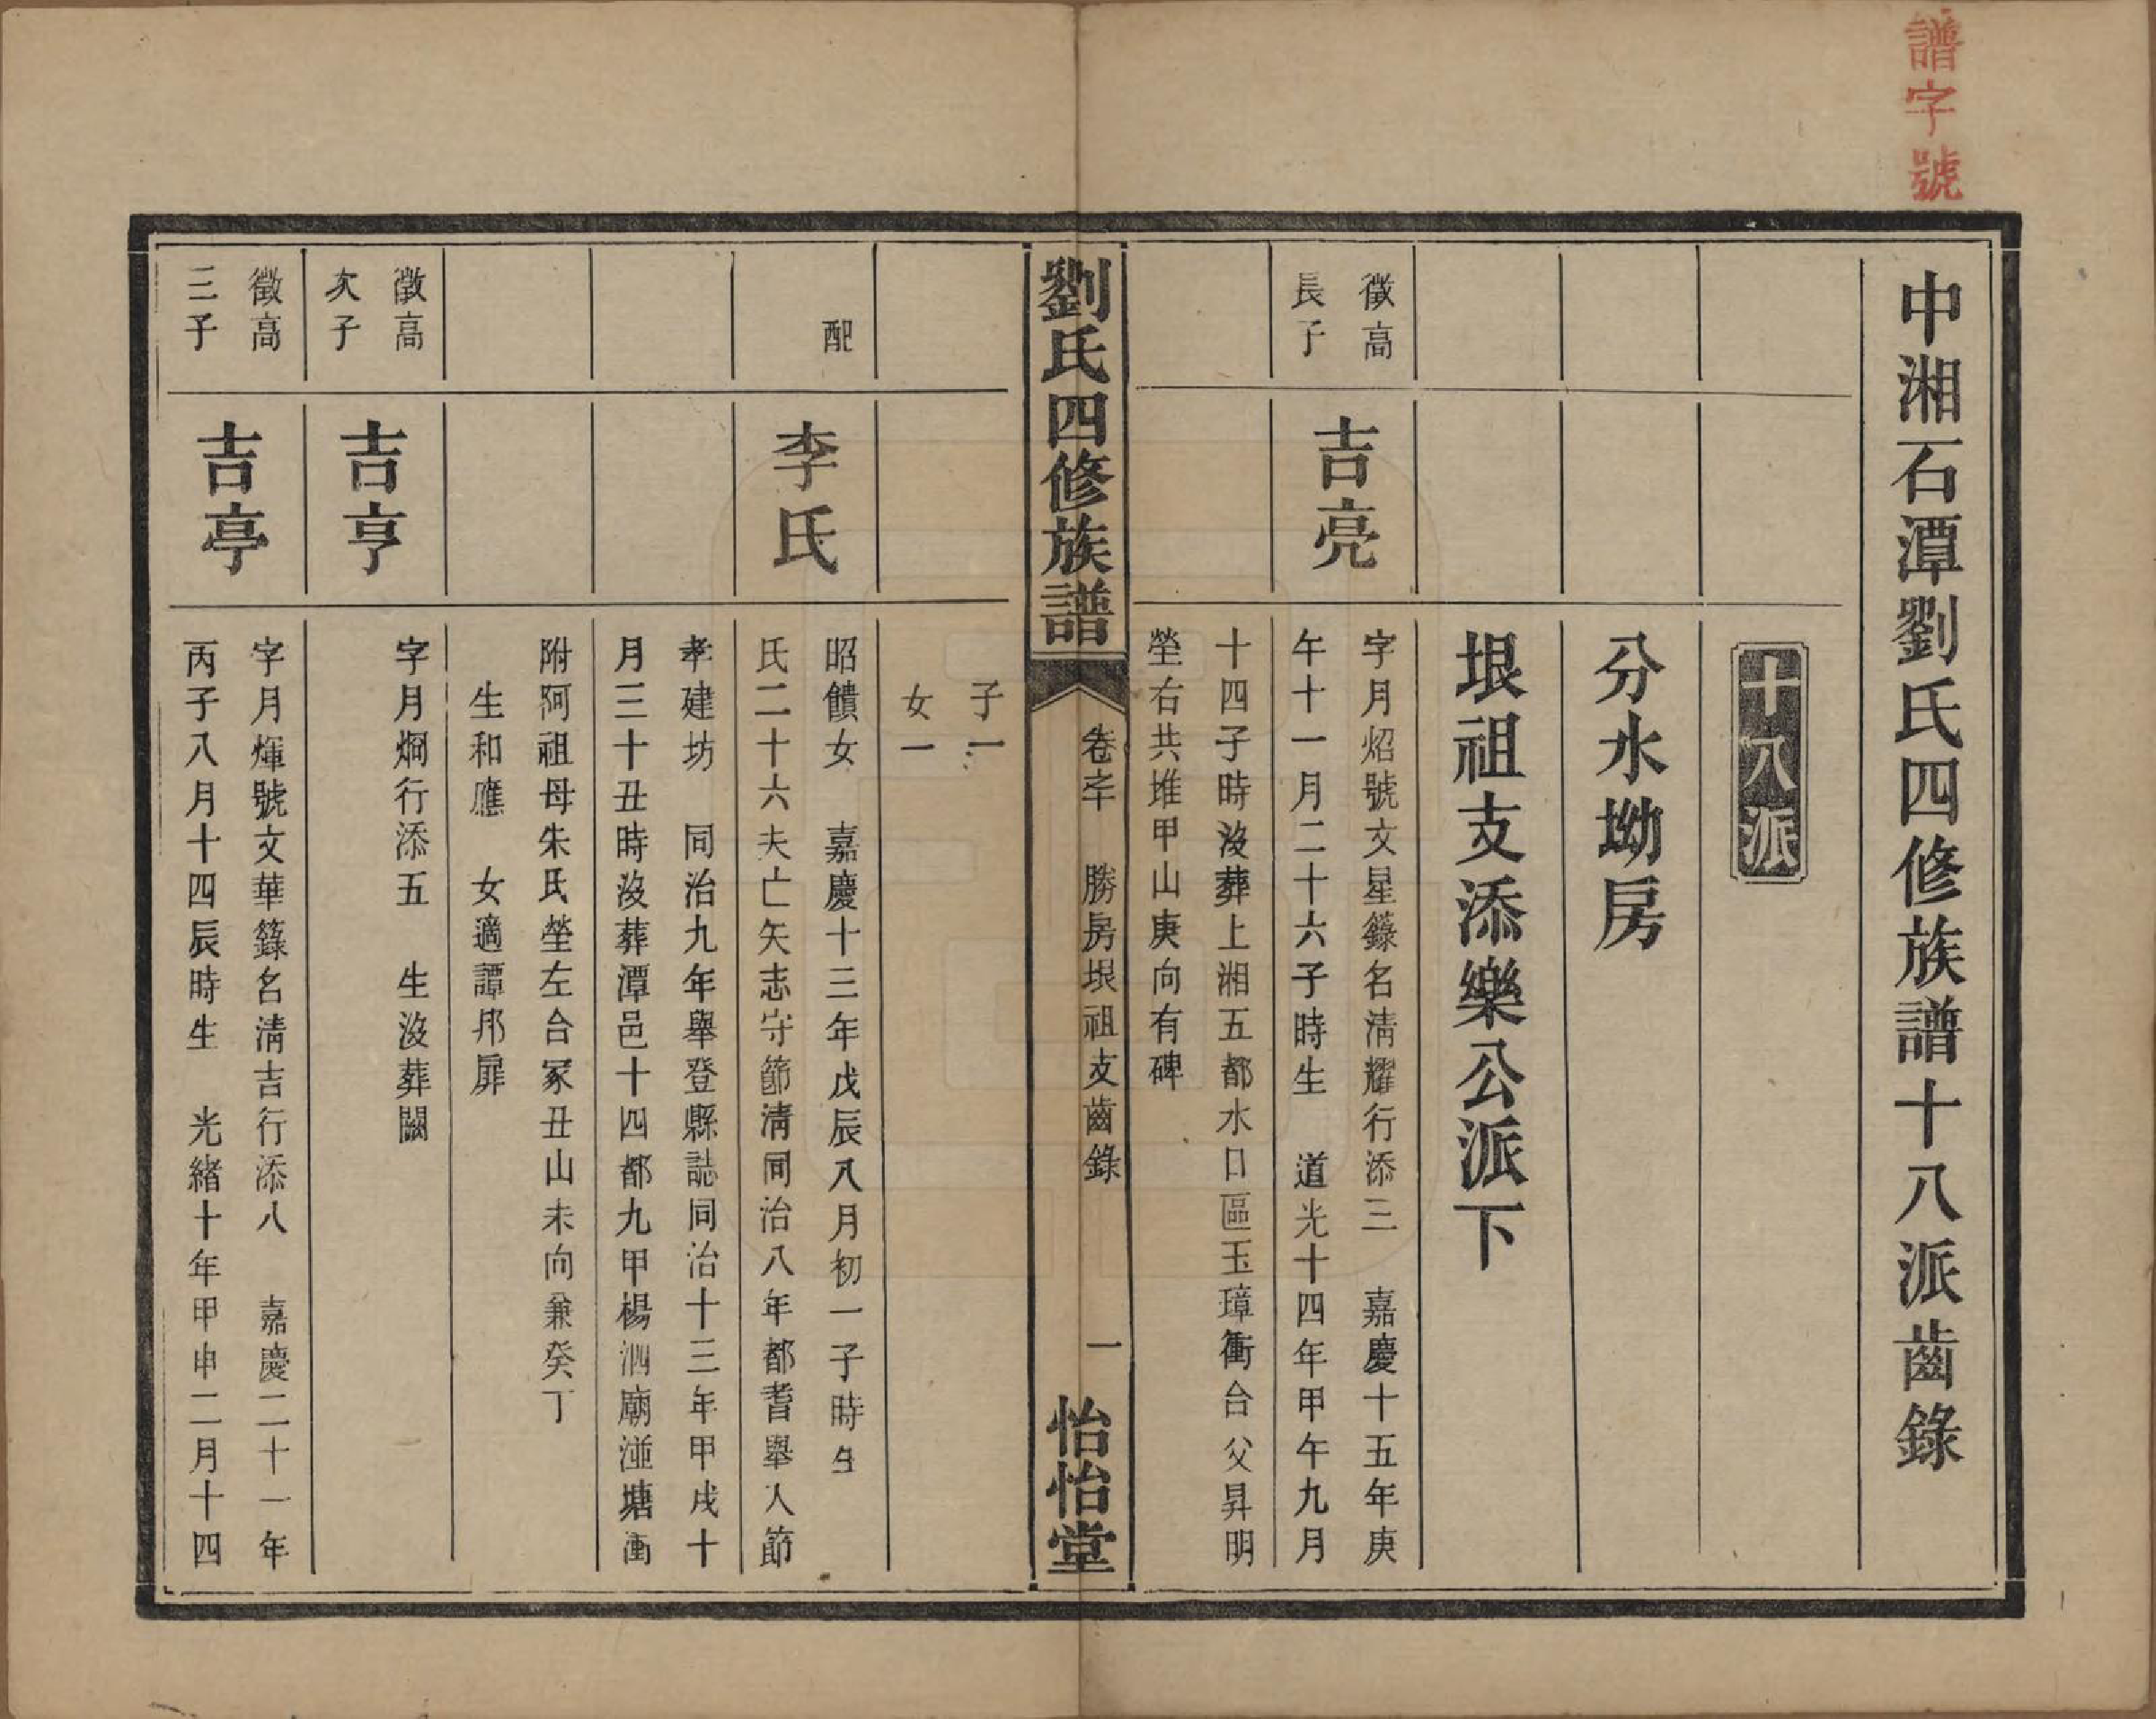 譜字號
中湘石潭劉氏四修族譜十八派齒錄
十八派
分水坳房
垠祖支添樂公派下
徵高
長子
吉亮
字月炤號文星籙名清耀行添三　嘉慶十五年庚
午十一月二十六子時生　道光十四年甲午九月
十四子時沒葬上湘五都水口區玉璋衝台父昇明
塋右共堆甲山庚向有碑
劉氏四修族譜
卷之十　勝房垠祖支齒錄
一
怡怡堂
子一
女一
配
李氏
昭饋女　嘉慶十三年戊辰八月初一子時生
氏二十六夫亡矢志守節清同治八年都耆舉人節
孝建坊　同治九年舉登縣誌同治十三年甲戌十
月三十丑時沒葬潭邑十四都九甲楊泗廟湴塘衝
附阿祖母朱氏塋左合冢丑山未向兼癸丁
生和應　女適譚邦屛
徵高
次子
吉亨
字月烱行添五　生沒葬闕
徵高
三子
吉亭
字月煇號文華籙名清吉行添八　嘉慶二十一年
丙子八月十四辰時生　光緒十年甲申二月十四